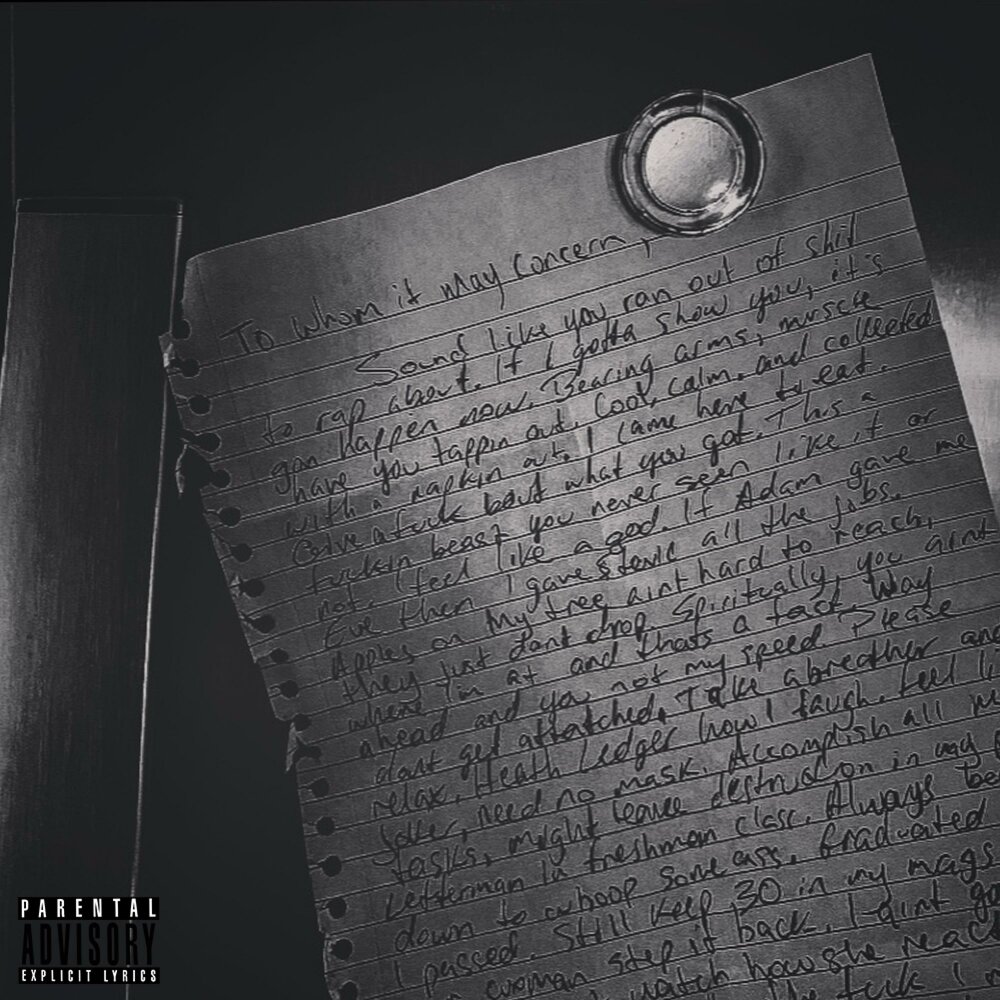 To whom it may concern,
Sound like you ran out of shit
to rap about. If I gotta show you, it's
gon happen now. Bearing arms, muscle
have you tappin out. Cool, calm, and collected
with a napkin out. I came here to eat.
Give a fuck bout what you got. This a
fuckin beast you never seen like it or
not. I feel like a god. If Adam gave me
Eve then I gave Steve all the jobs.
Apples on my tree aint hard to reach,
they just dont drop. Spiritually, you aint
where I'm at and thats a fact. Way
ahead and you not my speed. Please
dont get attatched. Take a breather and
relax. Heath Ledger how I laugh. feel li
Joker, need no mask. Accomplish all
tasks, might leave destruction in my
Letterman in freshman class. Always
down to whoop some ass. Graduated
I passed. Still keep 30 in my mags
woman step it back. I aint
watch how she reac
I
PARENTAL
ADVISORY
EXPLICIT LYRICS